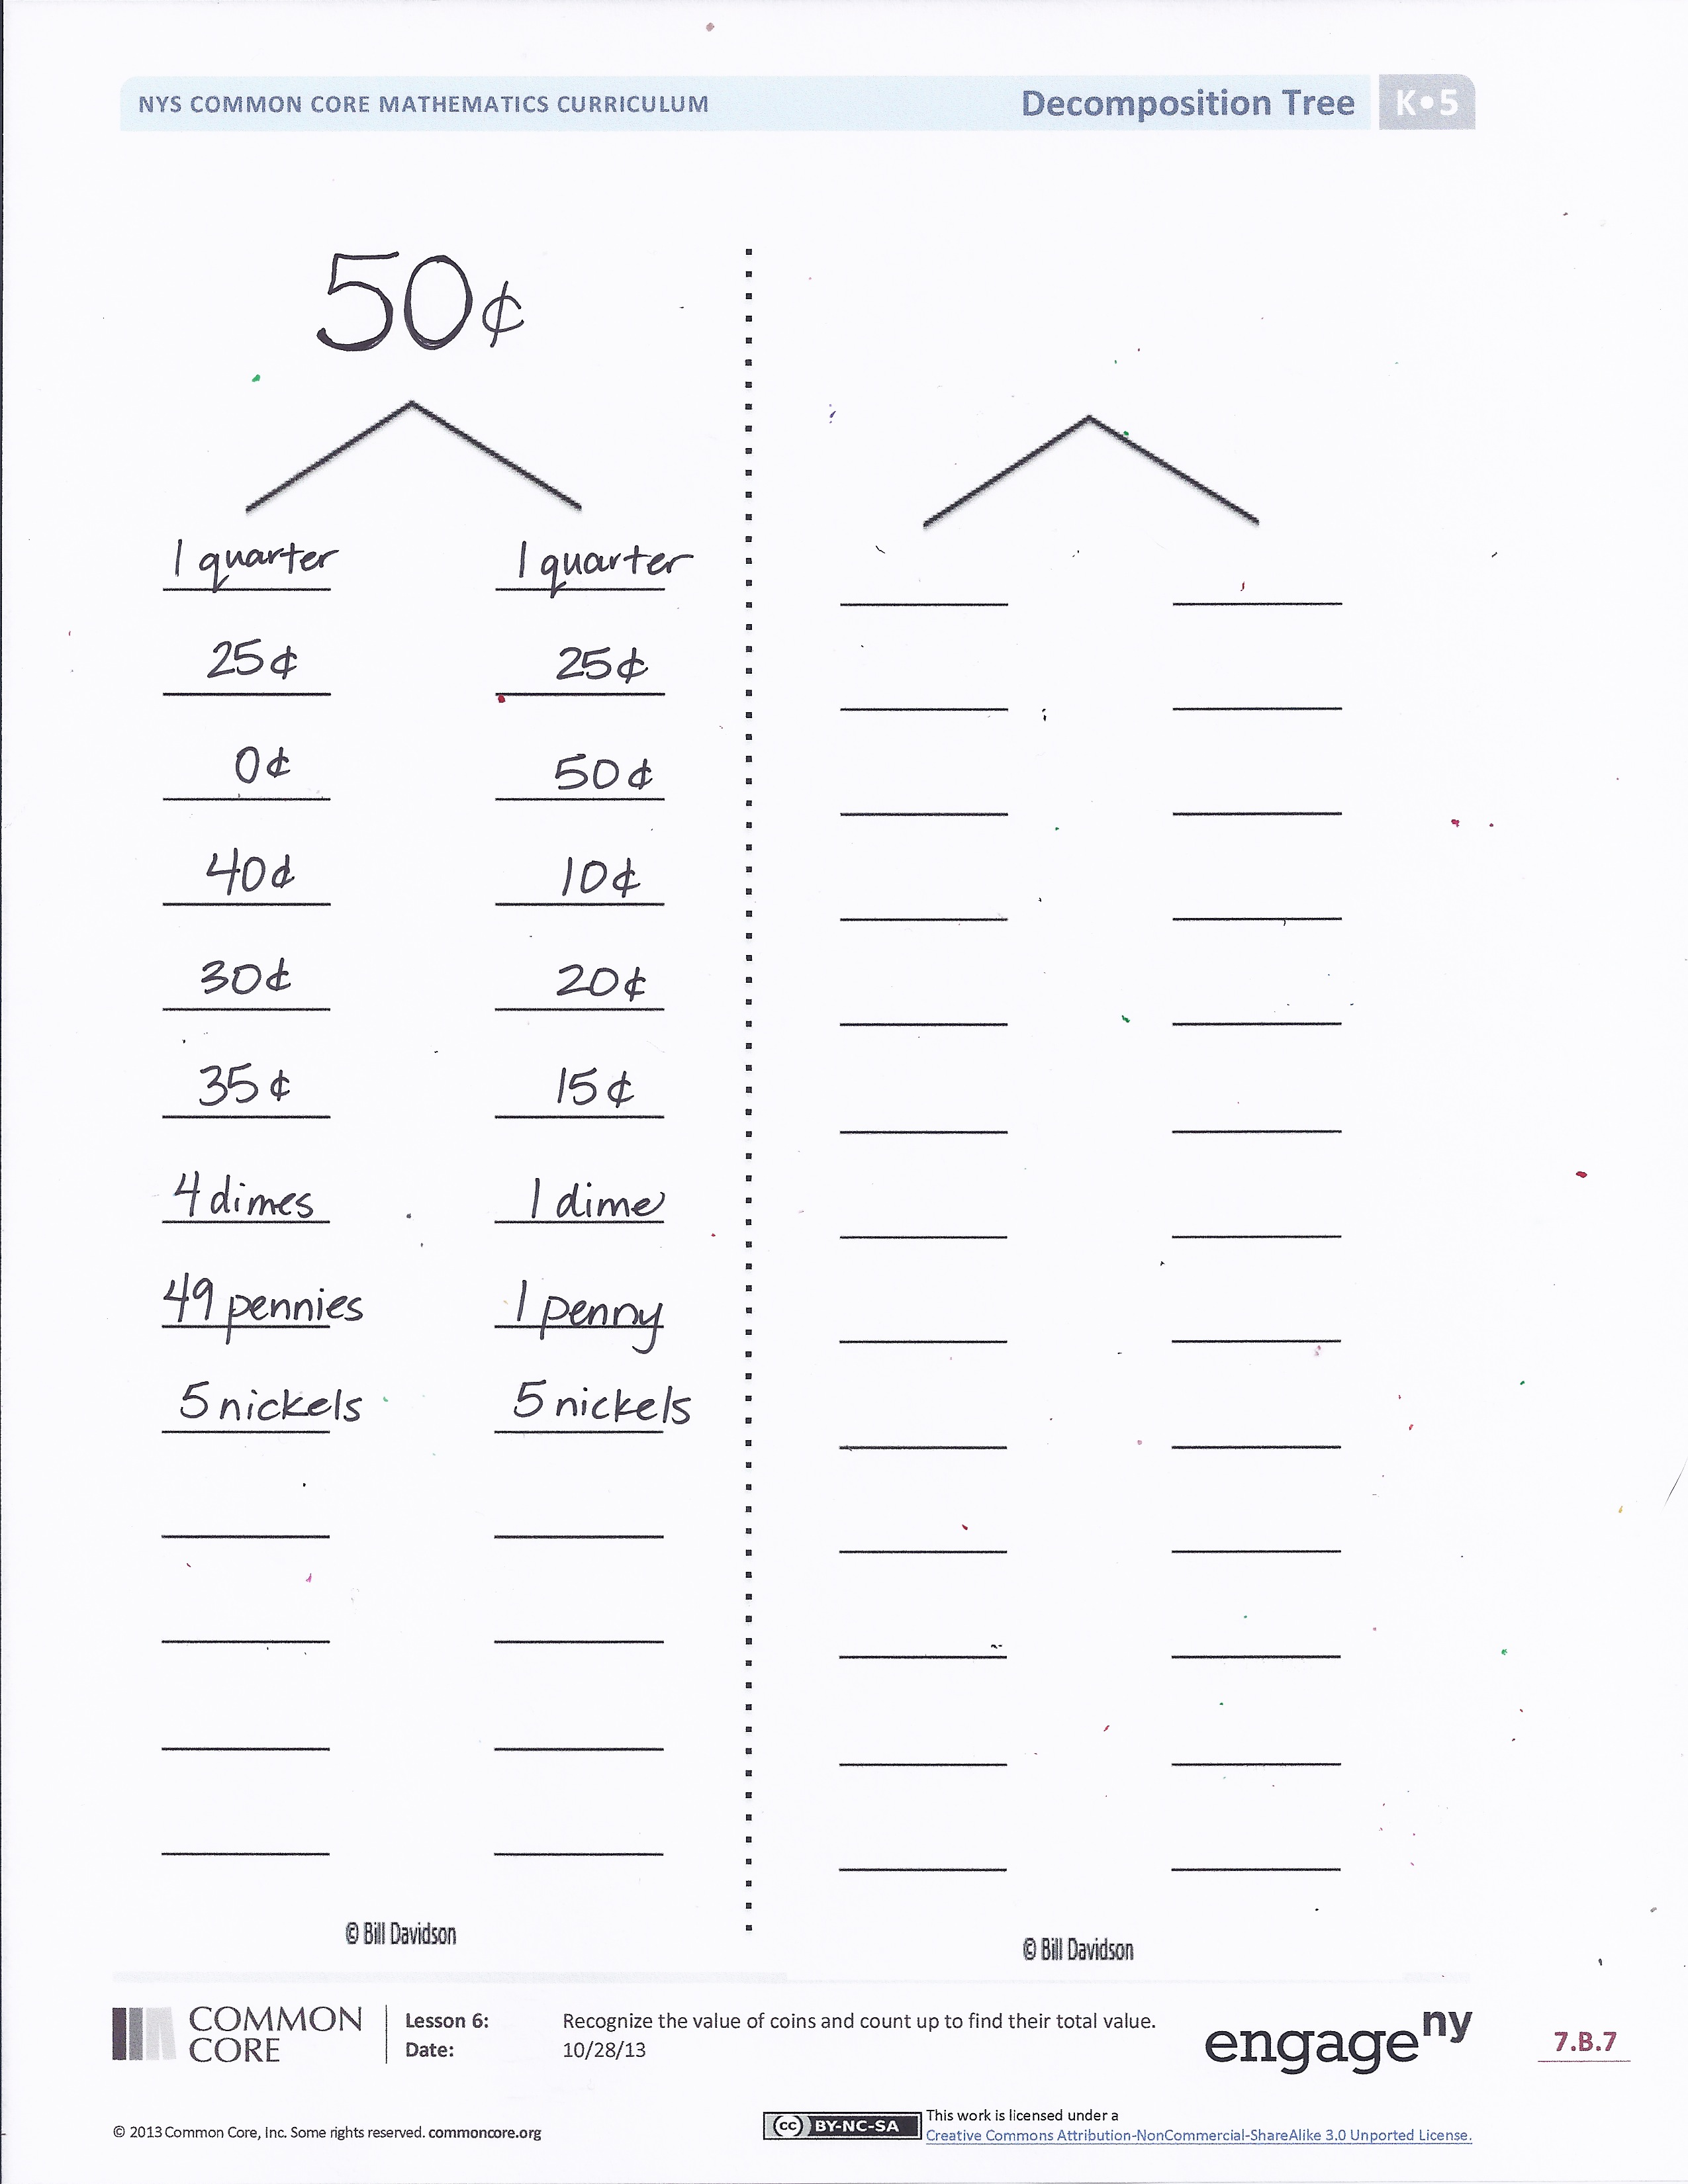 NYS COMMON CORE MATHEMATICS CURRICULUM Decomposition Tree K•5
50¢
1 quarter 1 quarter
25¢ 25¢
0¢ 50¢
40¢ 10¢
30¢ 20¢
35¢ 15¢
4 dimes 1 dime
49 pennies 1 penny
5 nickels 5 nickels
© Bill Davidson © Bill Davidson
COMMON CORE
Lesson 6: Recognize the value of coins and count up to find their total value.
Date: 10/28/13
engage ny
7.B.7
© 2013 Common Core, Inc. Some rights reserved. commoncore.org
cc BY-NC-SA
This work is licensed under a
Creative Commons Attribution-NonCommercial-ShareAlike 3.0 Unported License.